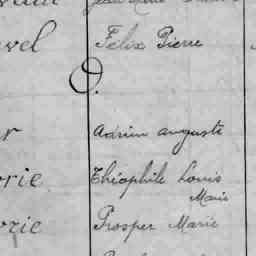 vel Félix Pierre
O.
r Adrien auguste
rie Théophile Louis
Marie
rie Prosper Marie